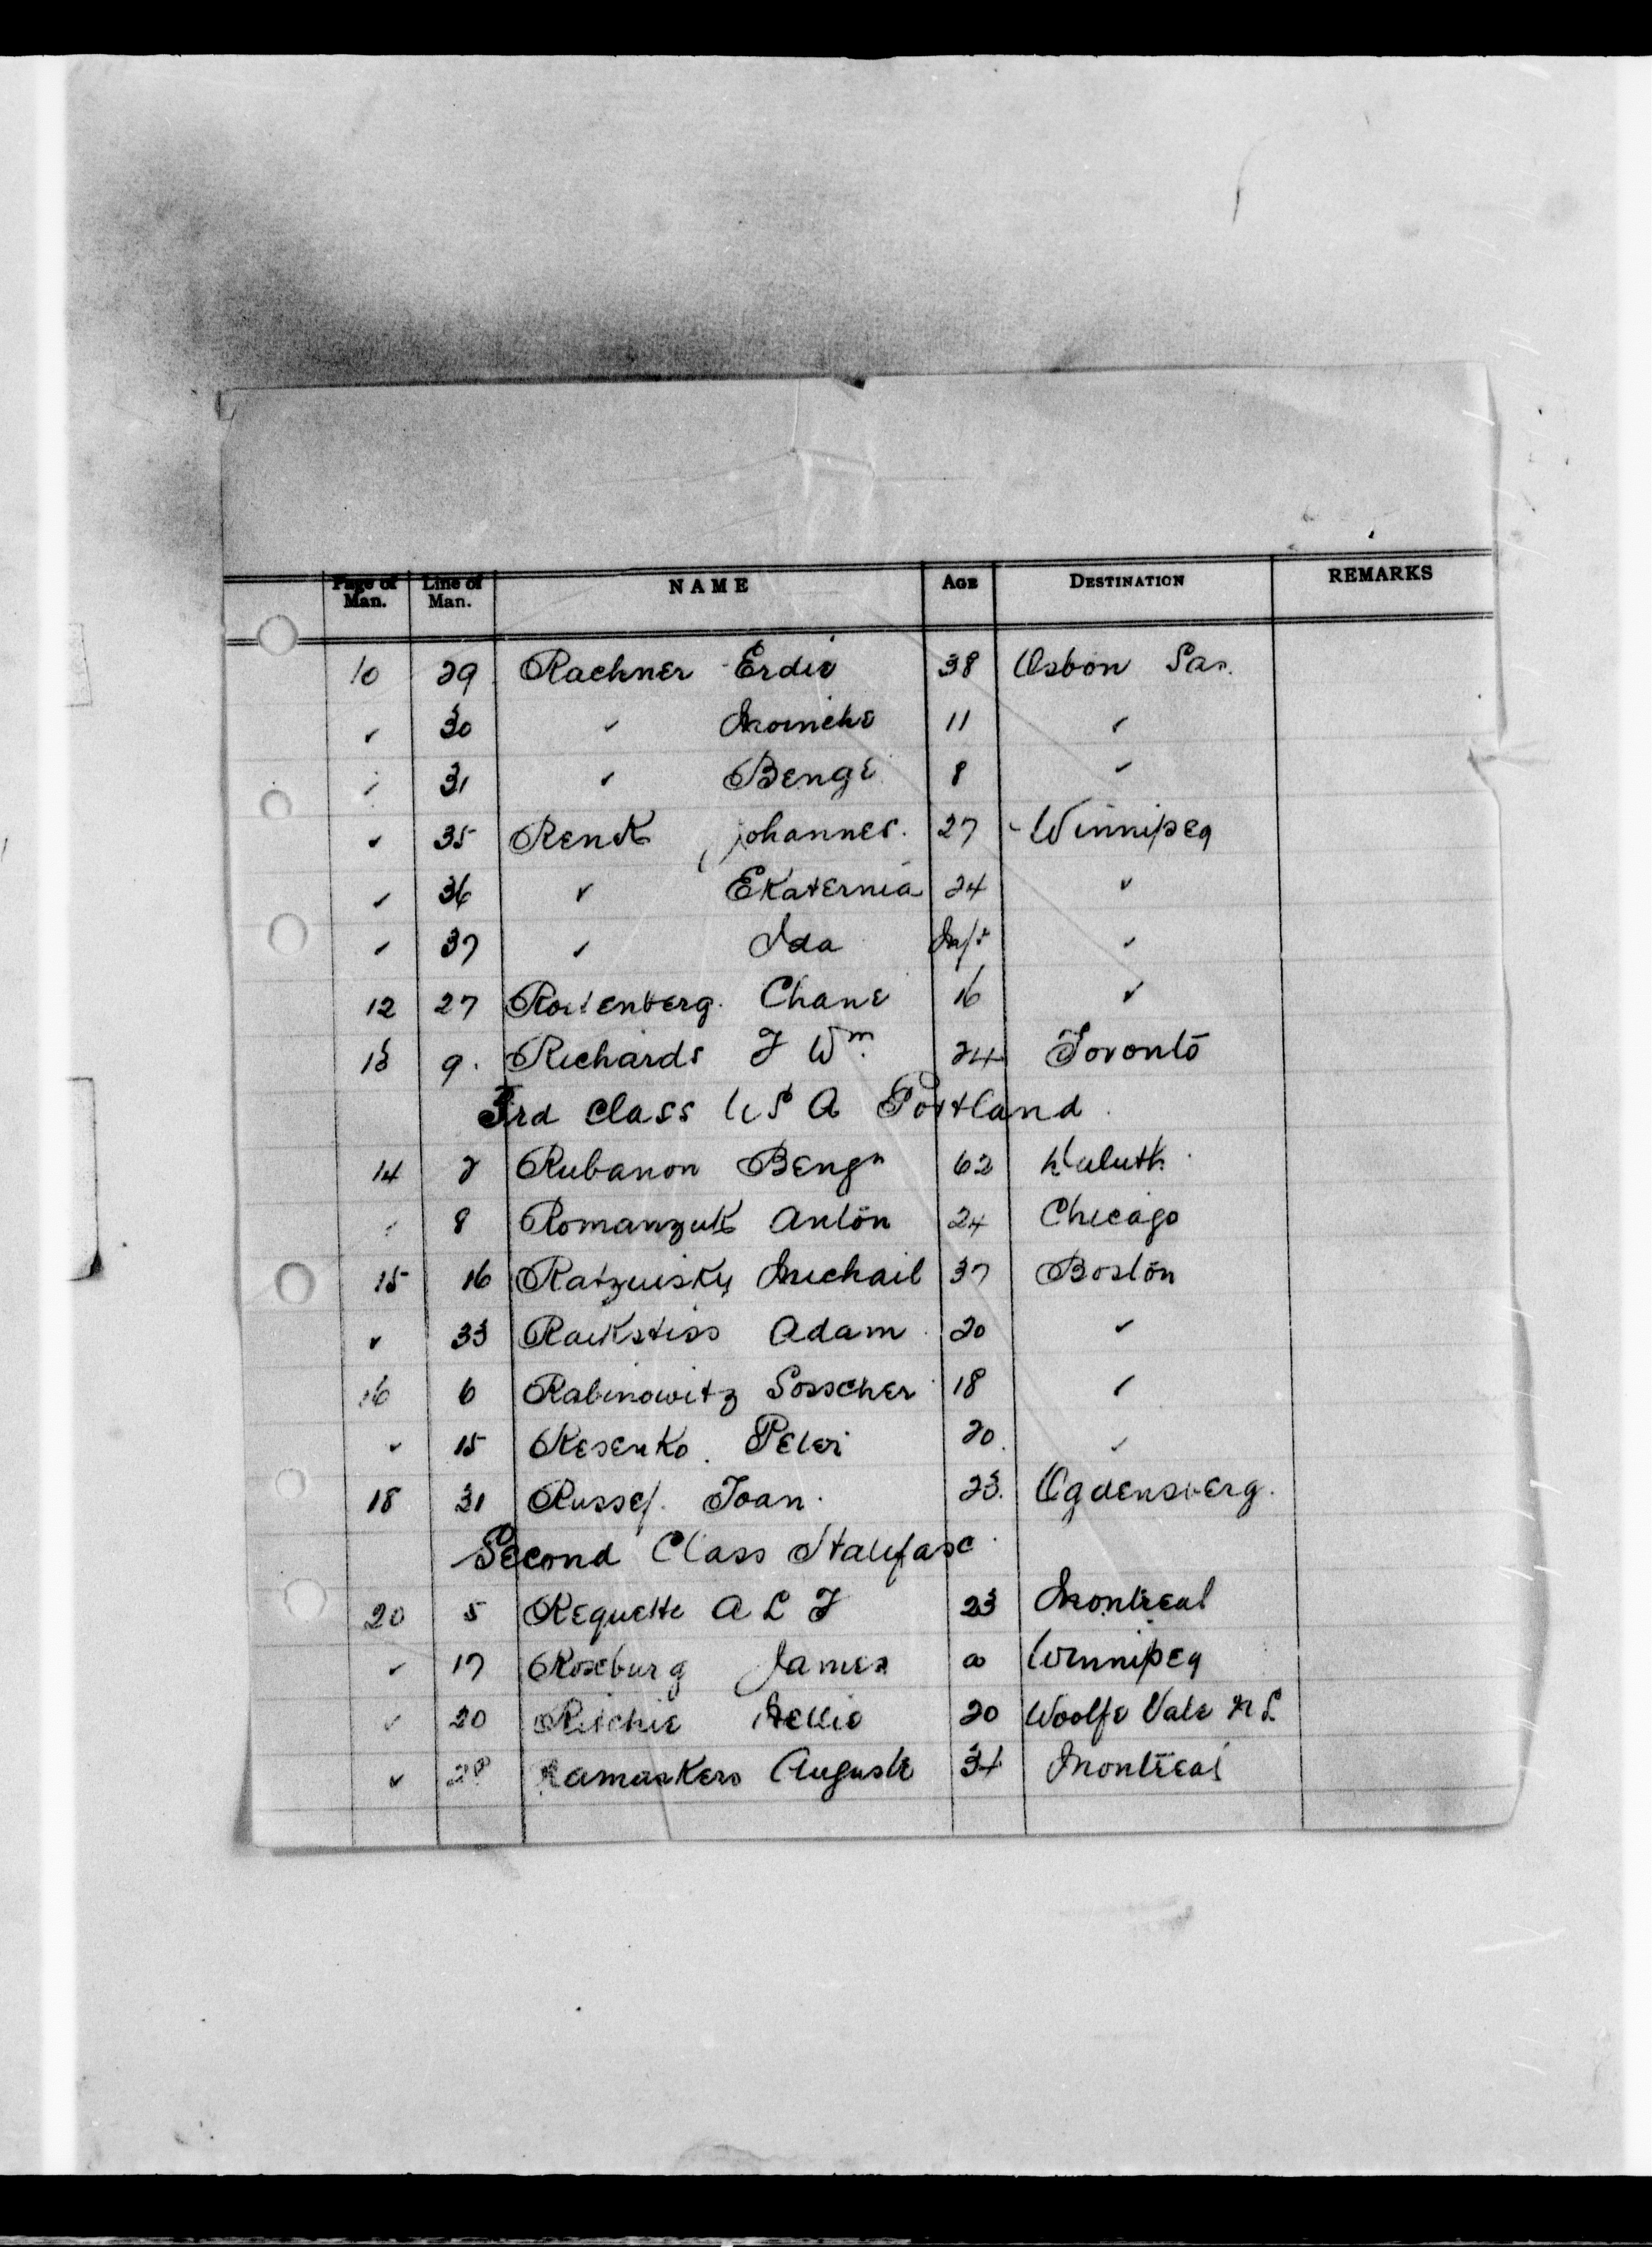 Page of Man. Line of Man. NAME AGE DESTINATION REMARKS
10 29 Rachner Erdie 38 Osbon Sas.
✓ 30 ✓ 11 ✓
✓ 31 ✓ Benge 8 ✓
✓ 35 Renk Johannes. 27 Winnipeg
✓ 36 ✓ Ekaternia 24 ✓
✓ 37 ✓ Ida Inft ✓
12 27 Rottenberg. Chane 16 ✓
13 9. Richards J Wm. 24 Toronto
3rd Class U S A Portland.
14 2 Rubanon Bengn 62 Duluth.
✓ 8 Romanzuk Anton 24 Chicago
15 16 Ratzuisky Michail 37 Boston
✓ 33 Raikstiss Adam 20 ✓
16 6 Rabinowitz Sosscher 18 ✓
✓ 15 Resenko. Peter 20. ✓
18 31 Russef. Ioan. 23. Ogdensberg.
Second Class Halifax
20 5 Requette A L J 23 Montreal
✓ 17 Roxburg James Winnipeg
✓ 20 Ritchie Nellie 20 Woolfe Vale N S
✓ 28 Ramaskers Auguste 34 Montreal